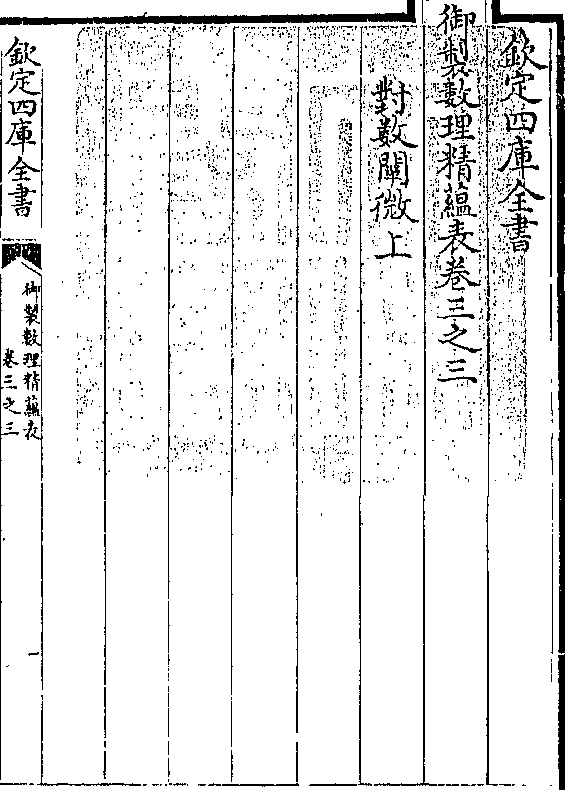 欽定四庫全書
御製數理精蘊表卷三之三
對數闡微上
欽定四庫全書
御製數理精蘊表
卷三之三
一